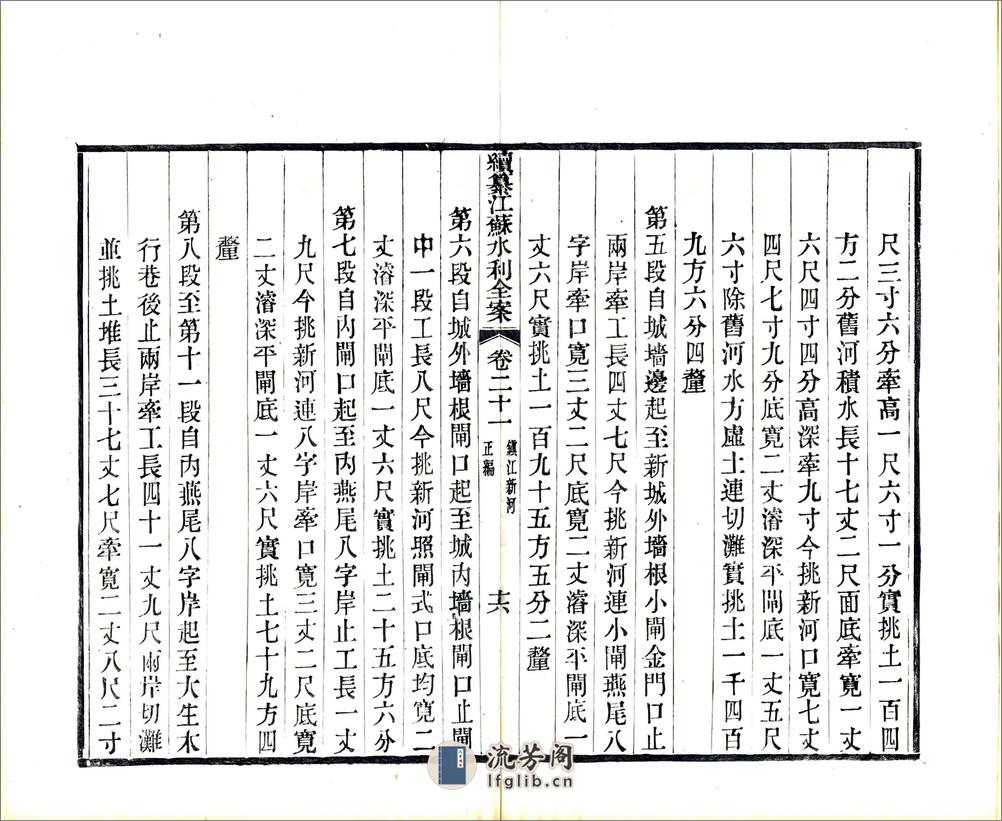 尺三寸六分牽高一尺六寸一分實挑土一百四
方二分舊河積水長十七丈二尺面底牽寬一丈
六尺四寸四分高深牽九寸今挑新河口寬七丈
四尺七寸九分底寬二丈濬深平閘底一丈五尺
六寸除舊河水方虛土連切灘實挑土一千四百
九方六分四釐
第五段自城墻邊起至新城外墻根小閘金門口止
兩岸牽工長四丈七尺今挑新河連小閘燕尾八
字岸牽口寬三丈二尺底寬二丈濬深平閘底一
丈六尺實挑土一百九十五方五分二釐
續纂江蘇水利全案
卷二十一
鎮江新河
正編
十六
第六段自城外墻根閘口起至城內墻根閘口止閘
中一段工長八尺今挑新河照閘式口底均寬二
丈濬深平閘底一丈六尺實挑土二十五方六分
第七段自內閘口起至內燕尾八字岸止工長一丈
九尺今挑新河連八字岸牽口寬三丈二尺底寬
二丈濬深平閘底一丈六尺實挑土七十九方四
釐
第八段至第十一段自內燕尾八字岸起至大生木
行巷後止兩岸牽工長四十一丈九尺兩岸切灘
並挑土堆長三十七丈七尺牽寬二丈八尺二寸
流芳阁
lfglib.cn